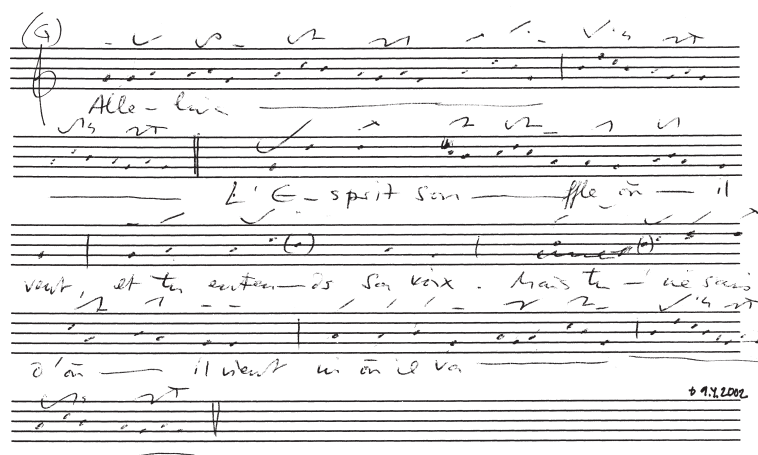 (G)
Alle - luia
L' E - sprit sou — ffle où — il
veut, et tu enten - ds sa voix. Mais tu — ne sais
d'où — il vient ni où il va
9.Y.2002